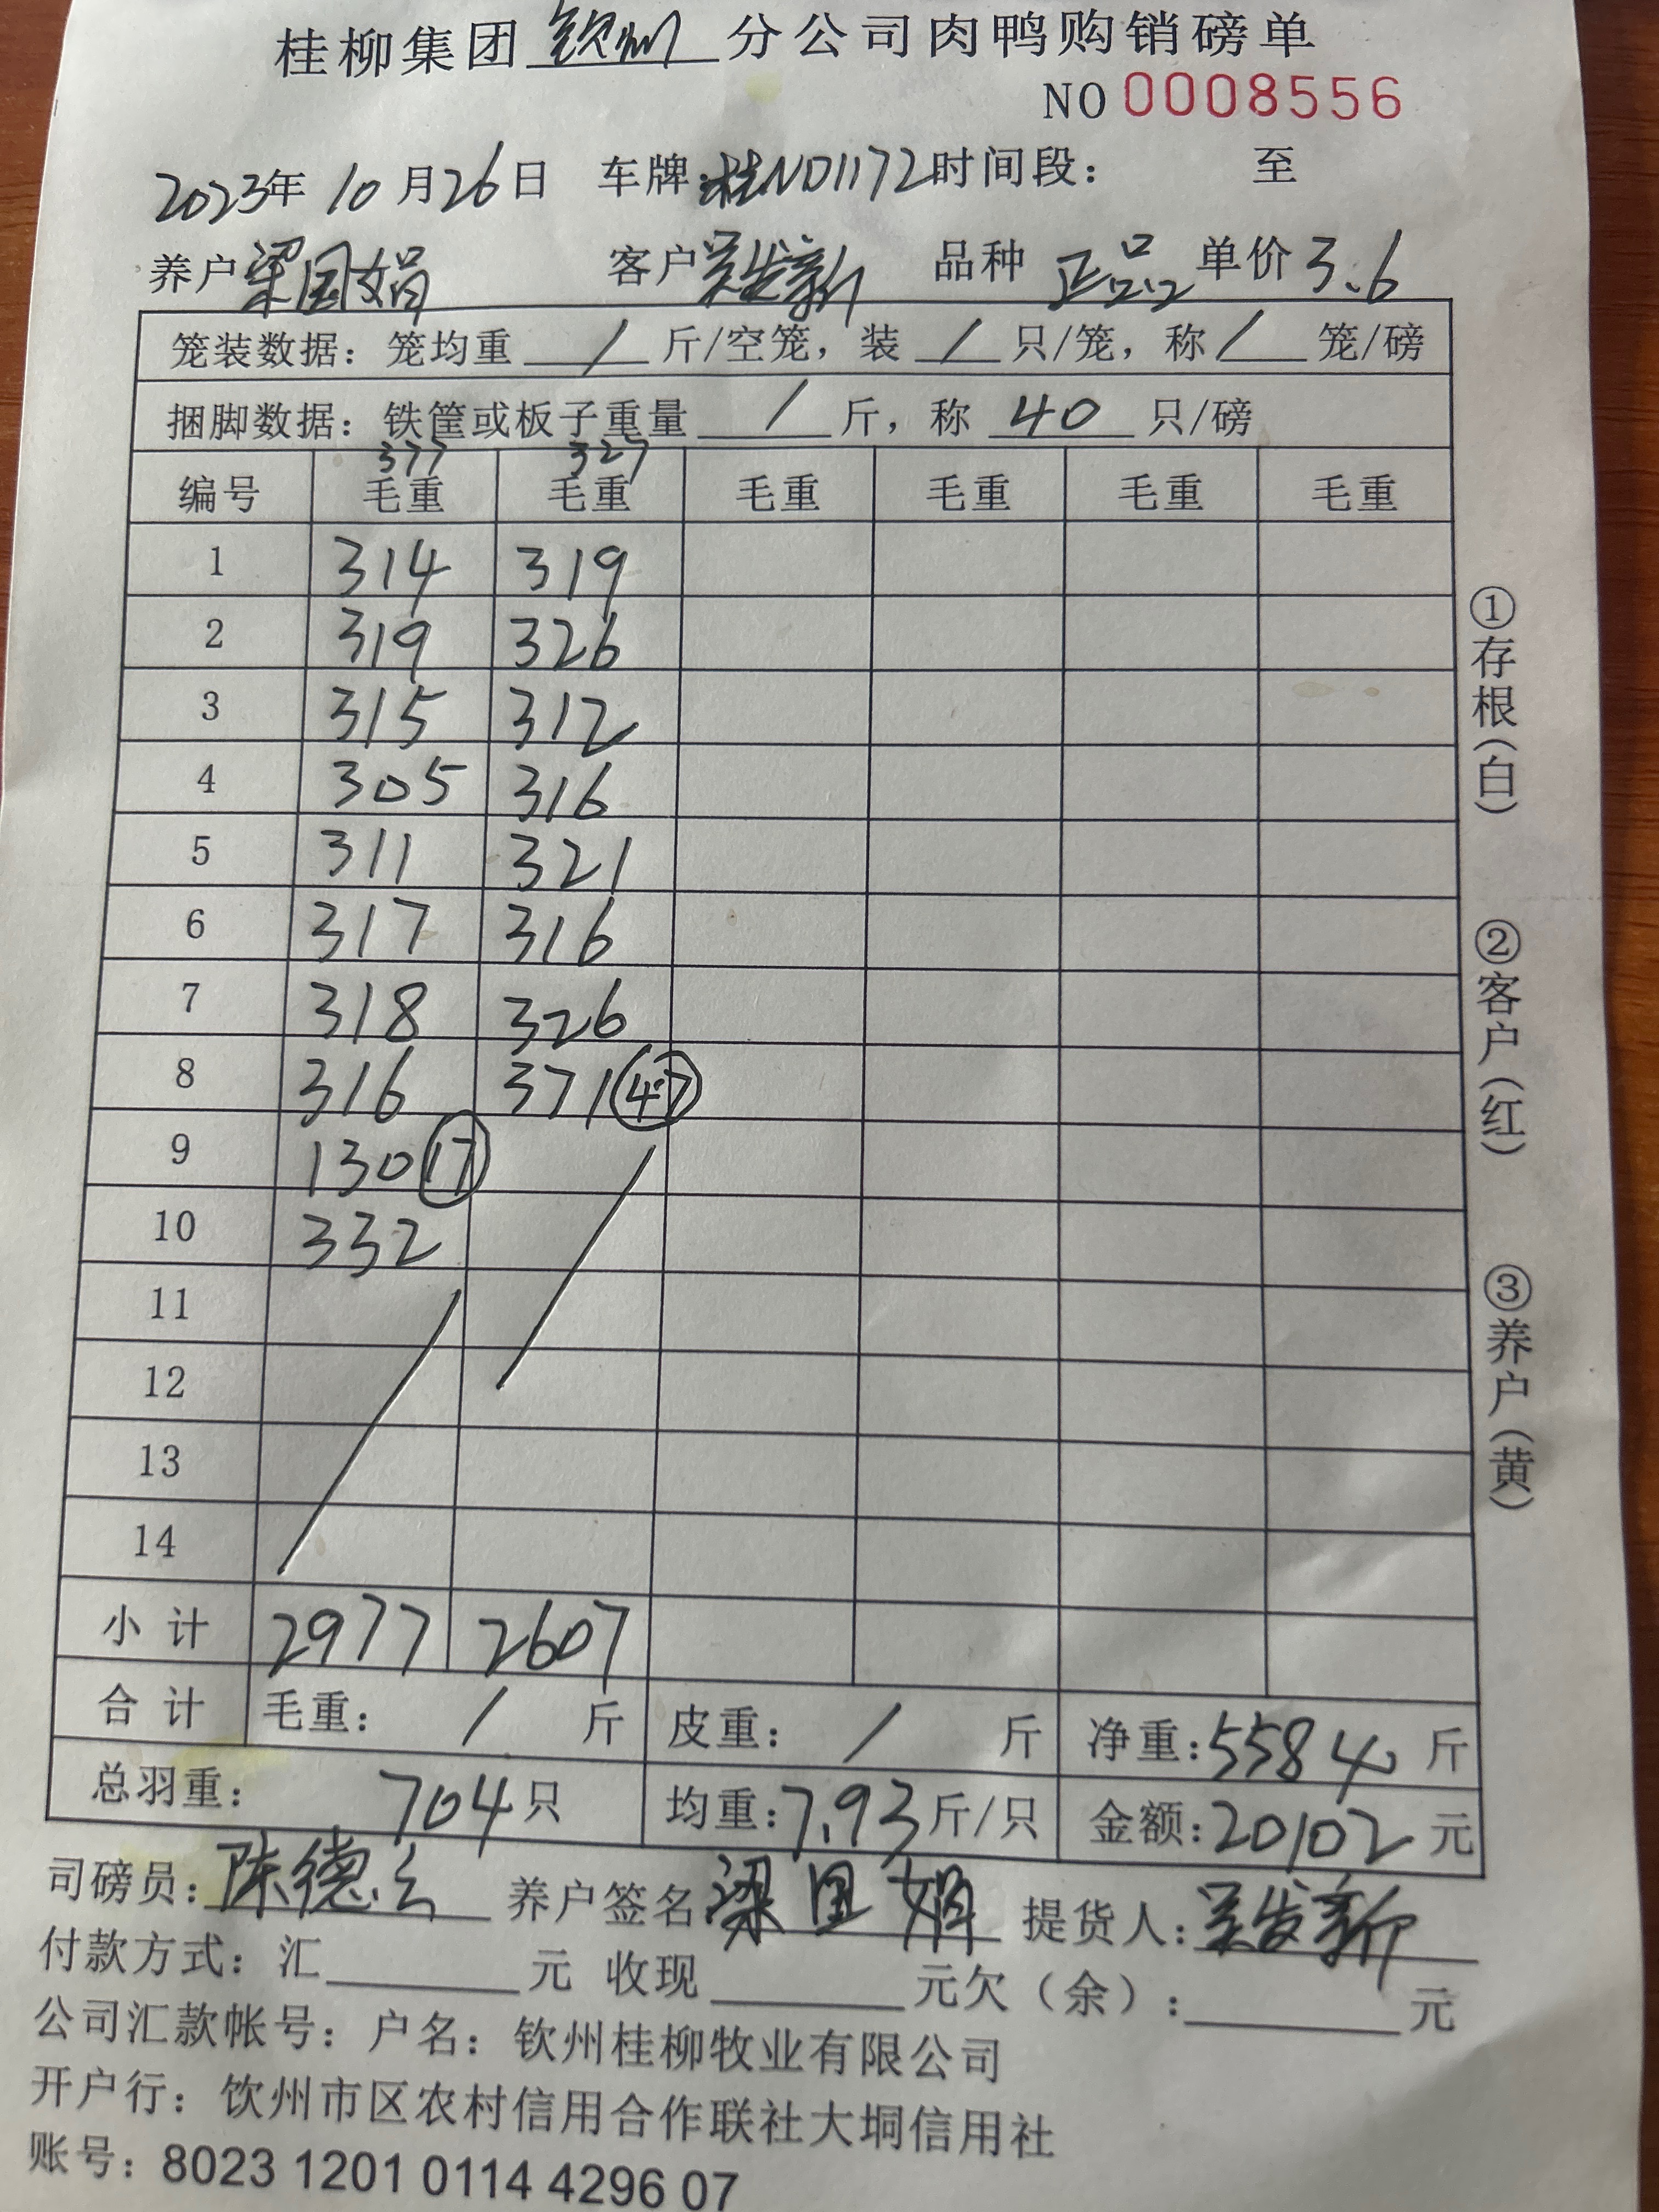 桂柳集团 钦州 分公司肉鸭购销磅单
NO 0008556
2023年 10月26日 车牌:桂ND1172 时间段： 至
养户 梁国娟 客户 吴发新 品种 正品 单价 3.6
笼装数据：笼均重 / 斤/空笼，装 / 只/笼，称 / 笼/磅
捆脚数据：铁筐或板子重量 / 斤，称 40 只/磅
377 327
编号 毛重 毛重 毛重 毛重 毛重 毛重
1 314 319
2 319 326
3 315 312
4 305 316
5 311 321
6 317 316
7 318 326
8 316 371 47
9 130 17
10 332
11
12
13
14
小计 2977 2607
合计 毛重： / 斤 皮重： / 斤 净重：5584 斤
总羽重： 704 只 均重：7.93 斤/只 金额：20102 元
司磅员：陈德 养户签名 梁国娟 提货人：吴发新
付款方式：汇 元 收现 元欠（余）： 元
公司汇款帐号：户名：钦州桂柳牧业有限公司
开户行：钦州市区农村信用合作联社大垌信用社
账号：8023 1201 0114 4296 07
①存根（白）
②客户（红）
③养户（黄）